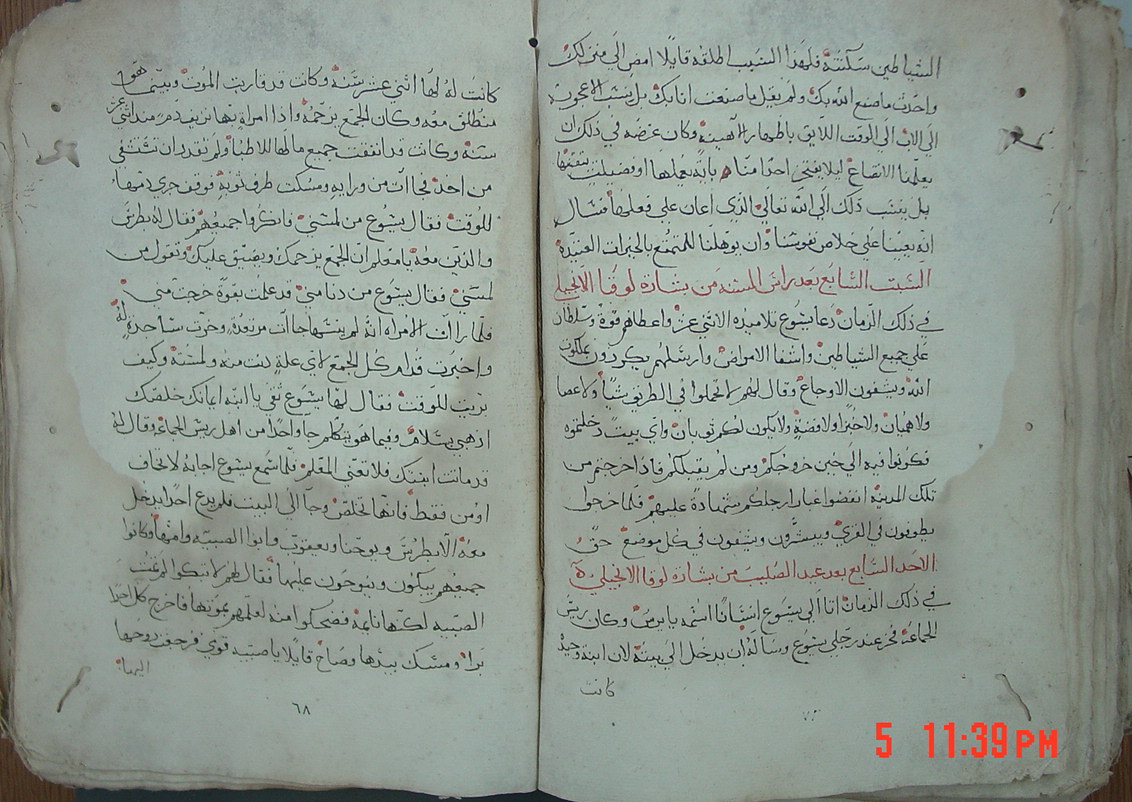 الشياطين ساكنة فلهذا السبب اطلقه قايلا امض الى منزلك
واحدث ما صنع الله بك ولم يقل ما صنعت انا بك بل ينسب الاعجوبه
الى الاب الى الوقت اللايق باظهار الاهيته وكان غرضه في ذلك ان
يعلمنا الاتضاع ليلا يفتخر احدا منا بانه يعملها او فضيلت يتقنها
بل ينسب ذلك الى الله تعالى الذي اعان على فعلها فنسال
انه يعيننا على خلاص نفوسنا وان يوهلنا للتمتع بالخيرات العتيدة
السبت السابع بعد راس السنه من بشارة لوقا الانجيلي
في ذلك الزمان دعا يسوع تلاميذه الاثني عشر واعطاهم قوة وسلطان
على جميع الشياطين واشفا الامراض وارسلهم يكرزون بملكوت
الله ويشفون الاوجاع وقال لهم لا تحملوا في الطريق شيا ولا عصا
ولا هميان ولا خبزا ولا فضة ولا يكون لكم ثوبان واي بيت دخلتموه
فكونوا فيه الى حين خروجكم ومن لم يقبلكم فاذا خرجتم من
تلك المدينه انفضوا غبار ارجلكم شهادة عليهم فلما خرجوا
يطوفون في القرى ويبشرون ويشفون في كل موضع
الاحد السابع بعد عيد الصليب من بشارة لوقا الانجيلي
في ذلك الزمان اتا الى يسوع انسانا اسمه يايرس وكان ريس
الجماعة فخر عند رجلي يسوع وساله ان يدخل الى بيته لان ابنة وحيدة
كانت
كانت له لها اثني عشر سنه وكانت قد قاربت الموت وبينما هو
منطلق معه وكان الجمع يزحمه واذا امراة بها نزيف دم منذ اثني عشر
سنه وكانت قد انفقت جميع مالها للاطبا ولم تقدر ان تشتفى
من احد فجاات من ورايه ومسكت طرف ثوبه فوقف جري دمها
للوقت فقال يسوع من لمسني فانكروا جميعهم فقال له بطرس
والذين معه يا معلم ان الجمع يزحمك ويضيق عليك وتقول من
لمسني فقال يسوع من دنا مني قد علمت بقوة خرجت مني
فلما رات الامراه انه لم ينسها جاات مرتعدة وخرت ساجدة له
واخبرت قدام كل الجمع لاي علة دنت منه ولمسته وكيف
بريت للوقت فقال لها يسوع ثقي يا ابنه ايمانك خلصك
اذهبي بسلام وفيما هو يتكلم جا واحدا من اهل ريس الجماعه وقال له
قد ماتت ابنتك فلا تعنى المعلم فلما سمع يسوع اجابه لا تخاف
اومن فقط فانها تخلص وجا الى البيت فلم يدع احدا يدخل
معه الا بطرس ويوحنا ويعقوب وابوا الصبيه وامها وكانوا
جميعهم يبكون وينوحون عليها فقال لهم لا تبكوا لم تمت
الصبيه لكنها نايمة فضحكوا منه لعلمهم بموتها فاخرج كل احدا
برا ومسك بيدها وصاح قايلا يا صبيه قومي فرجعت روحها
اليها
٦٨
5 11:39 PM